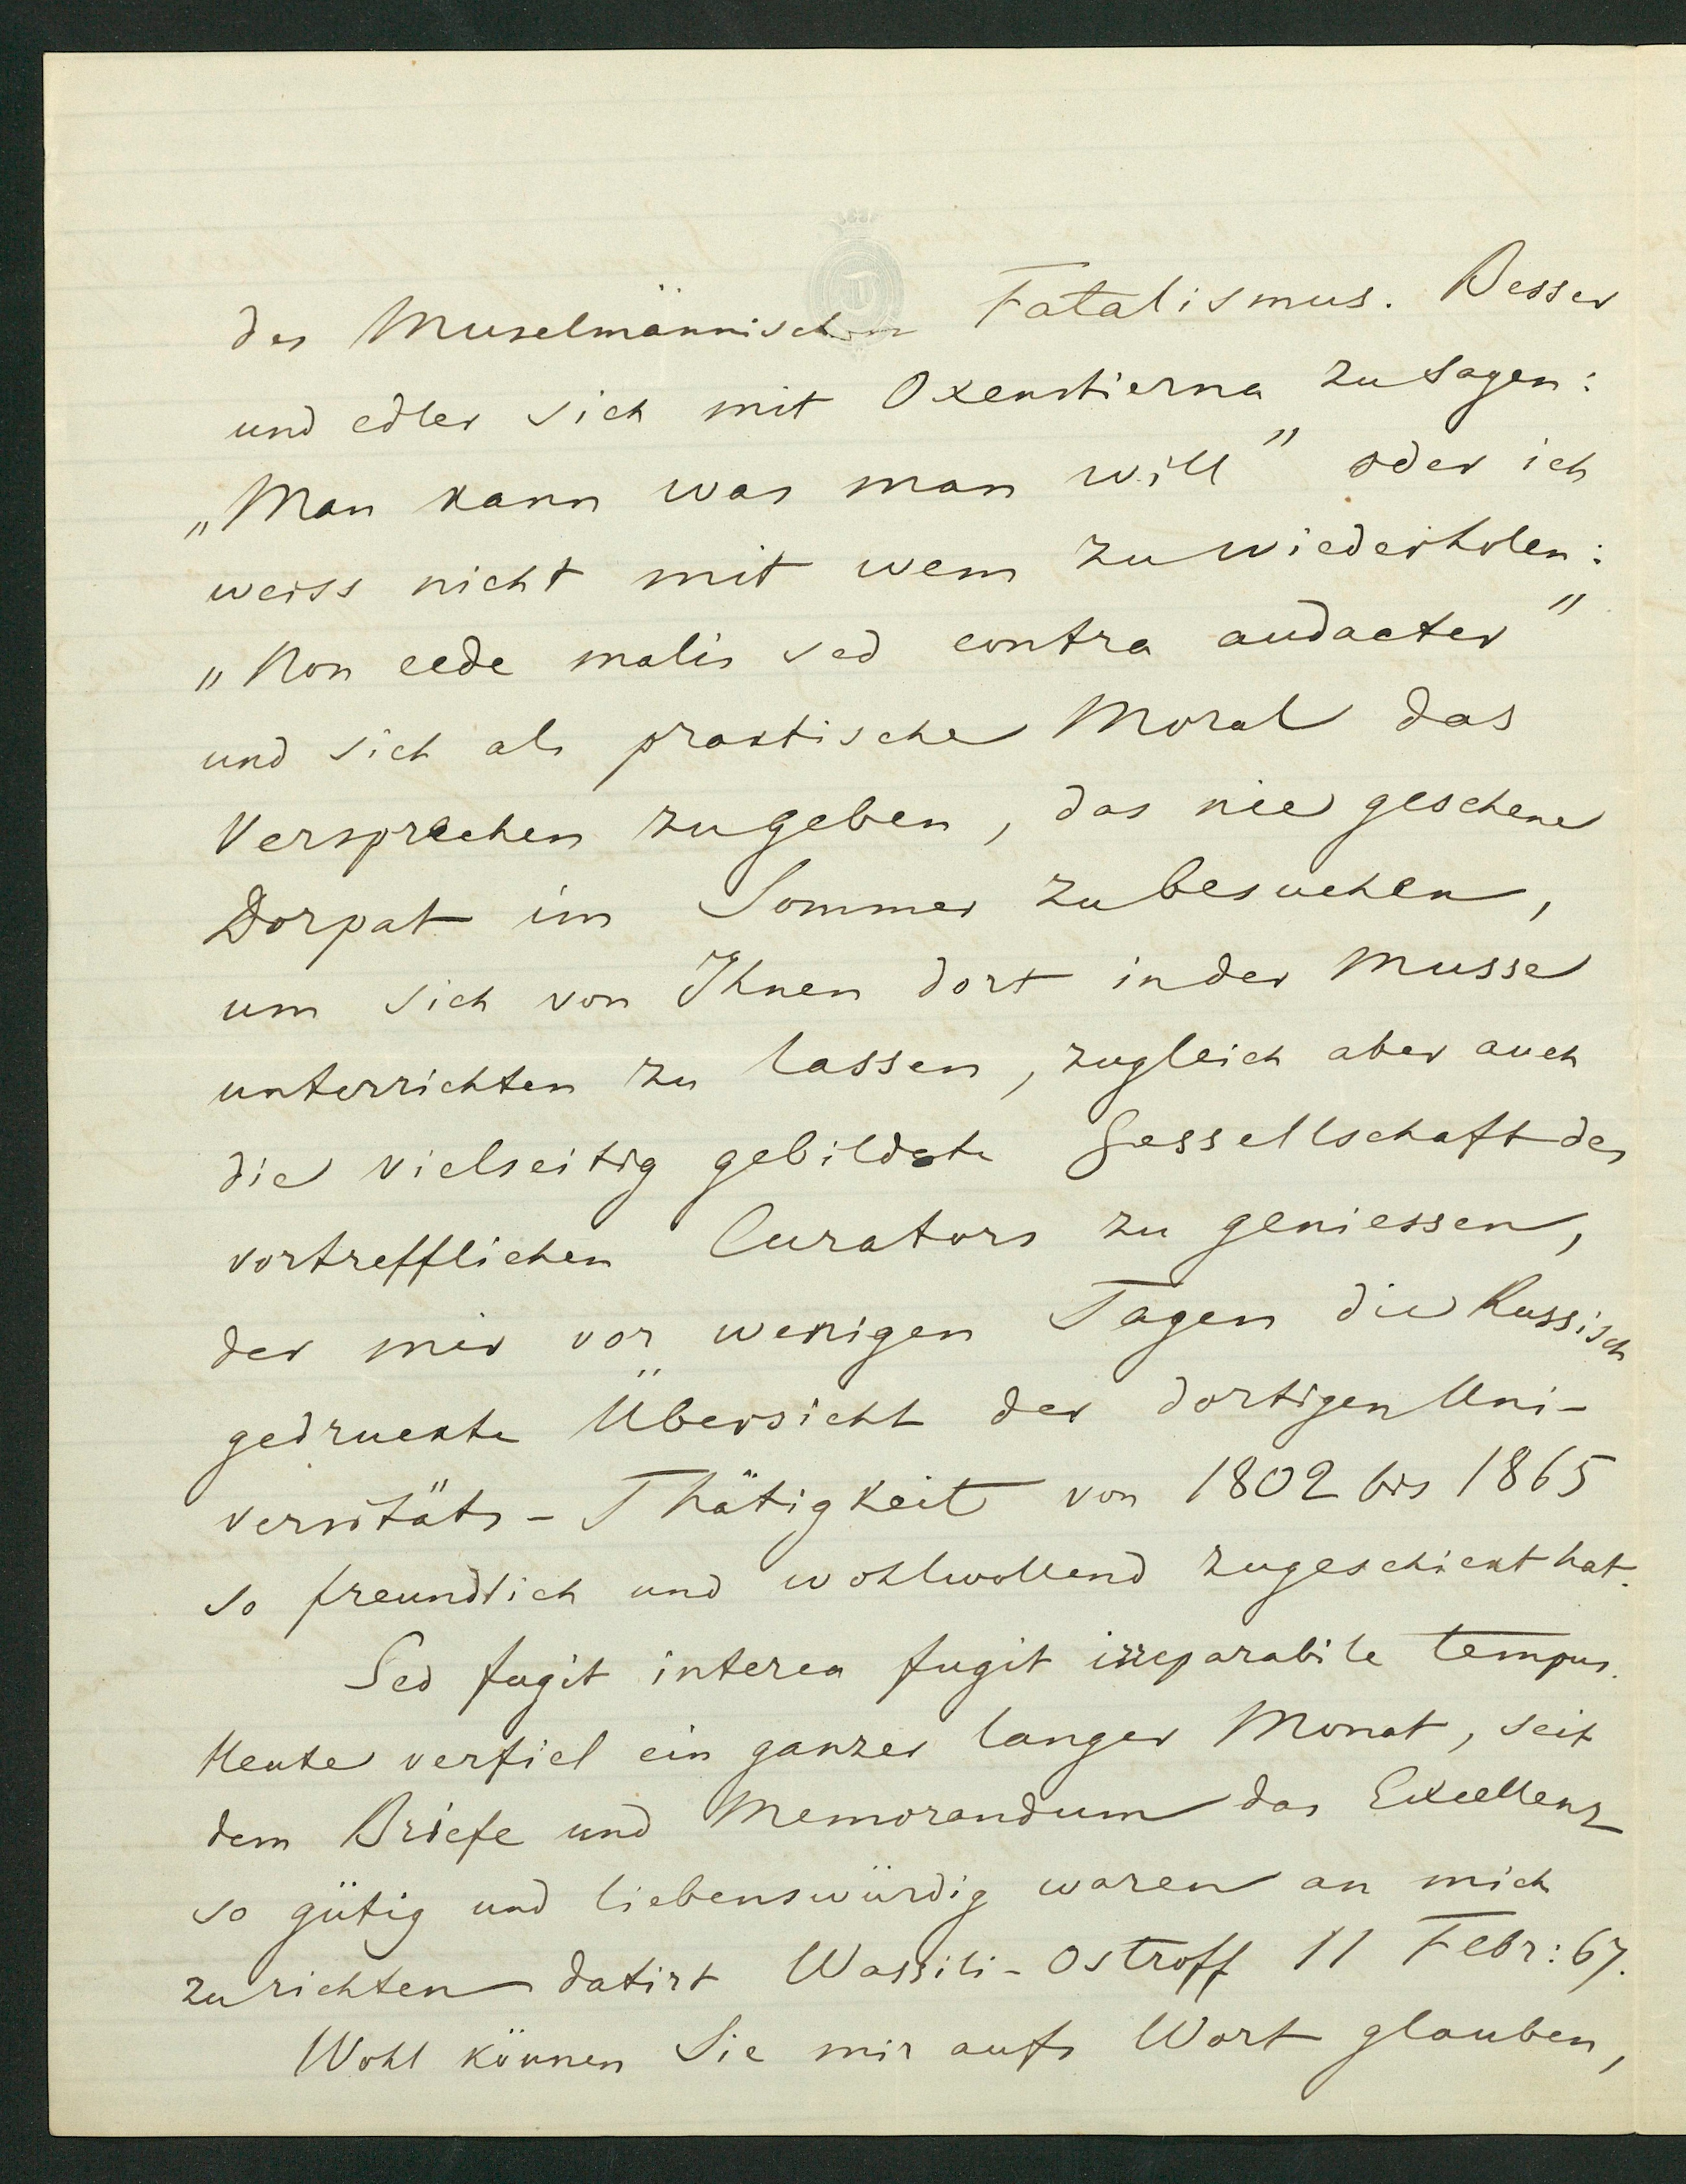 des Muselmännischen Fatalismus. Besser
und edler sich mit Oxenstierna zu sagen:
„Man kann was man will” oder ich
weiss nicht mit wem zu wiederholen:
„Non cede malis sed contra audacter”
und sich als praktische Moral das
Versprechen zu geben, das nie gesehene
Dorpat im Sommer zu besuchen,
um sich von Ihnen dort in der Musse
unterrichten zu lassen, zugleich aber auch
die vielseitig gebildete Gessellschaft des
vortrefflichen Curators zu geniessen,
der mir vor wenigen Tagen die Russisch
gedruckte Übersicht der dortigen Uni-
versitäts-Thätigkeit von 1802 bis 1865
so freundlich und wohlwollend zugeschickt hat.
Sed fugit interea fugit irreparabile tempus.
Heute verfiel ein ganzer langer Monat, seit
dem Briefe und Memorandum das Excellenz
so gütig und liebenswürdig waren an mich
zu richten datirt Wassili-Ostroff 11 Febr: 67.
Wohl können Sie mir aufs Wort glauben,